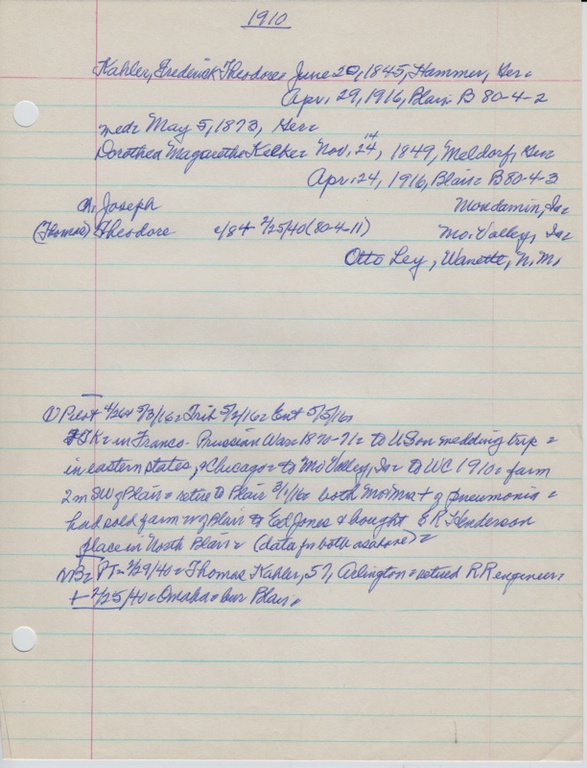 1910
Kahler, Frederick Theodore= June 20, 1845, Hammer, Ger=
Apr. 29, 1916, Blair= B 80-4-2
med= May 5, 1873, Ger=
14
Dorothea Magaretha Kelke= Nov. 24, 1849, Meldorf, Ger
Apr. 24, 1916, Blair= B80-4-3
ch. Joseph Mondamin, Ia
(Thomas) Theodore c/84 + 2/25/40 (80-4-11) Mo. Valley, Ia
Otto Ley, Wanette, N.M.
① Pilot 4/26+ 5/3/16= Trib 5/2/16= Ent 5/5/16=
FTK= in Franco-Prussian War= 1870-71= to US on wedding trip=
in eastern states, & Chicago= to Mo Valley, Ia= to WC 1910= farm
2 m SW of Blair= retire to Blair 3/1/16= both Mr & Mrs + of pneumonia=
had sold farm w of Blair to Ed Jones & bought E R Henderson
place in North Blair= (data for both as above)=
NB= PT= 2/29/40= Thomas Kahler, 57, Arlington= retired RR engineer=
+ 2/25/40= Omaha= bur Blair=